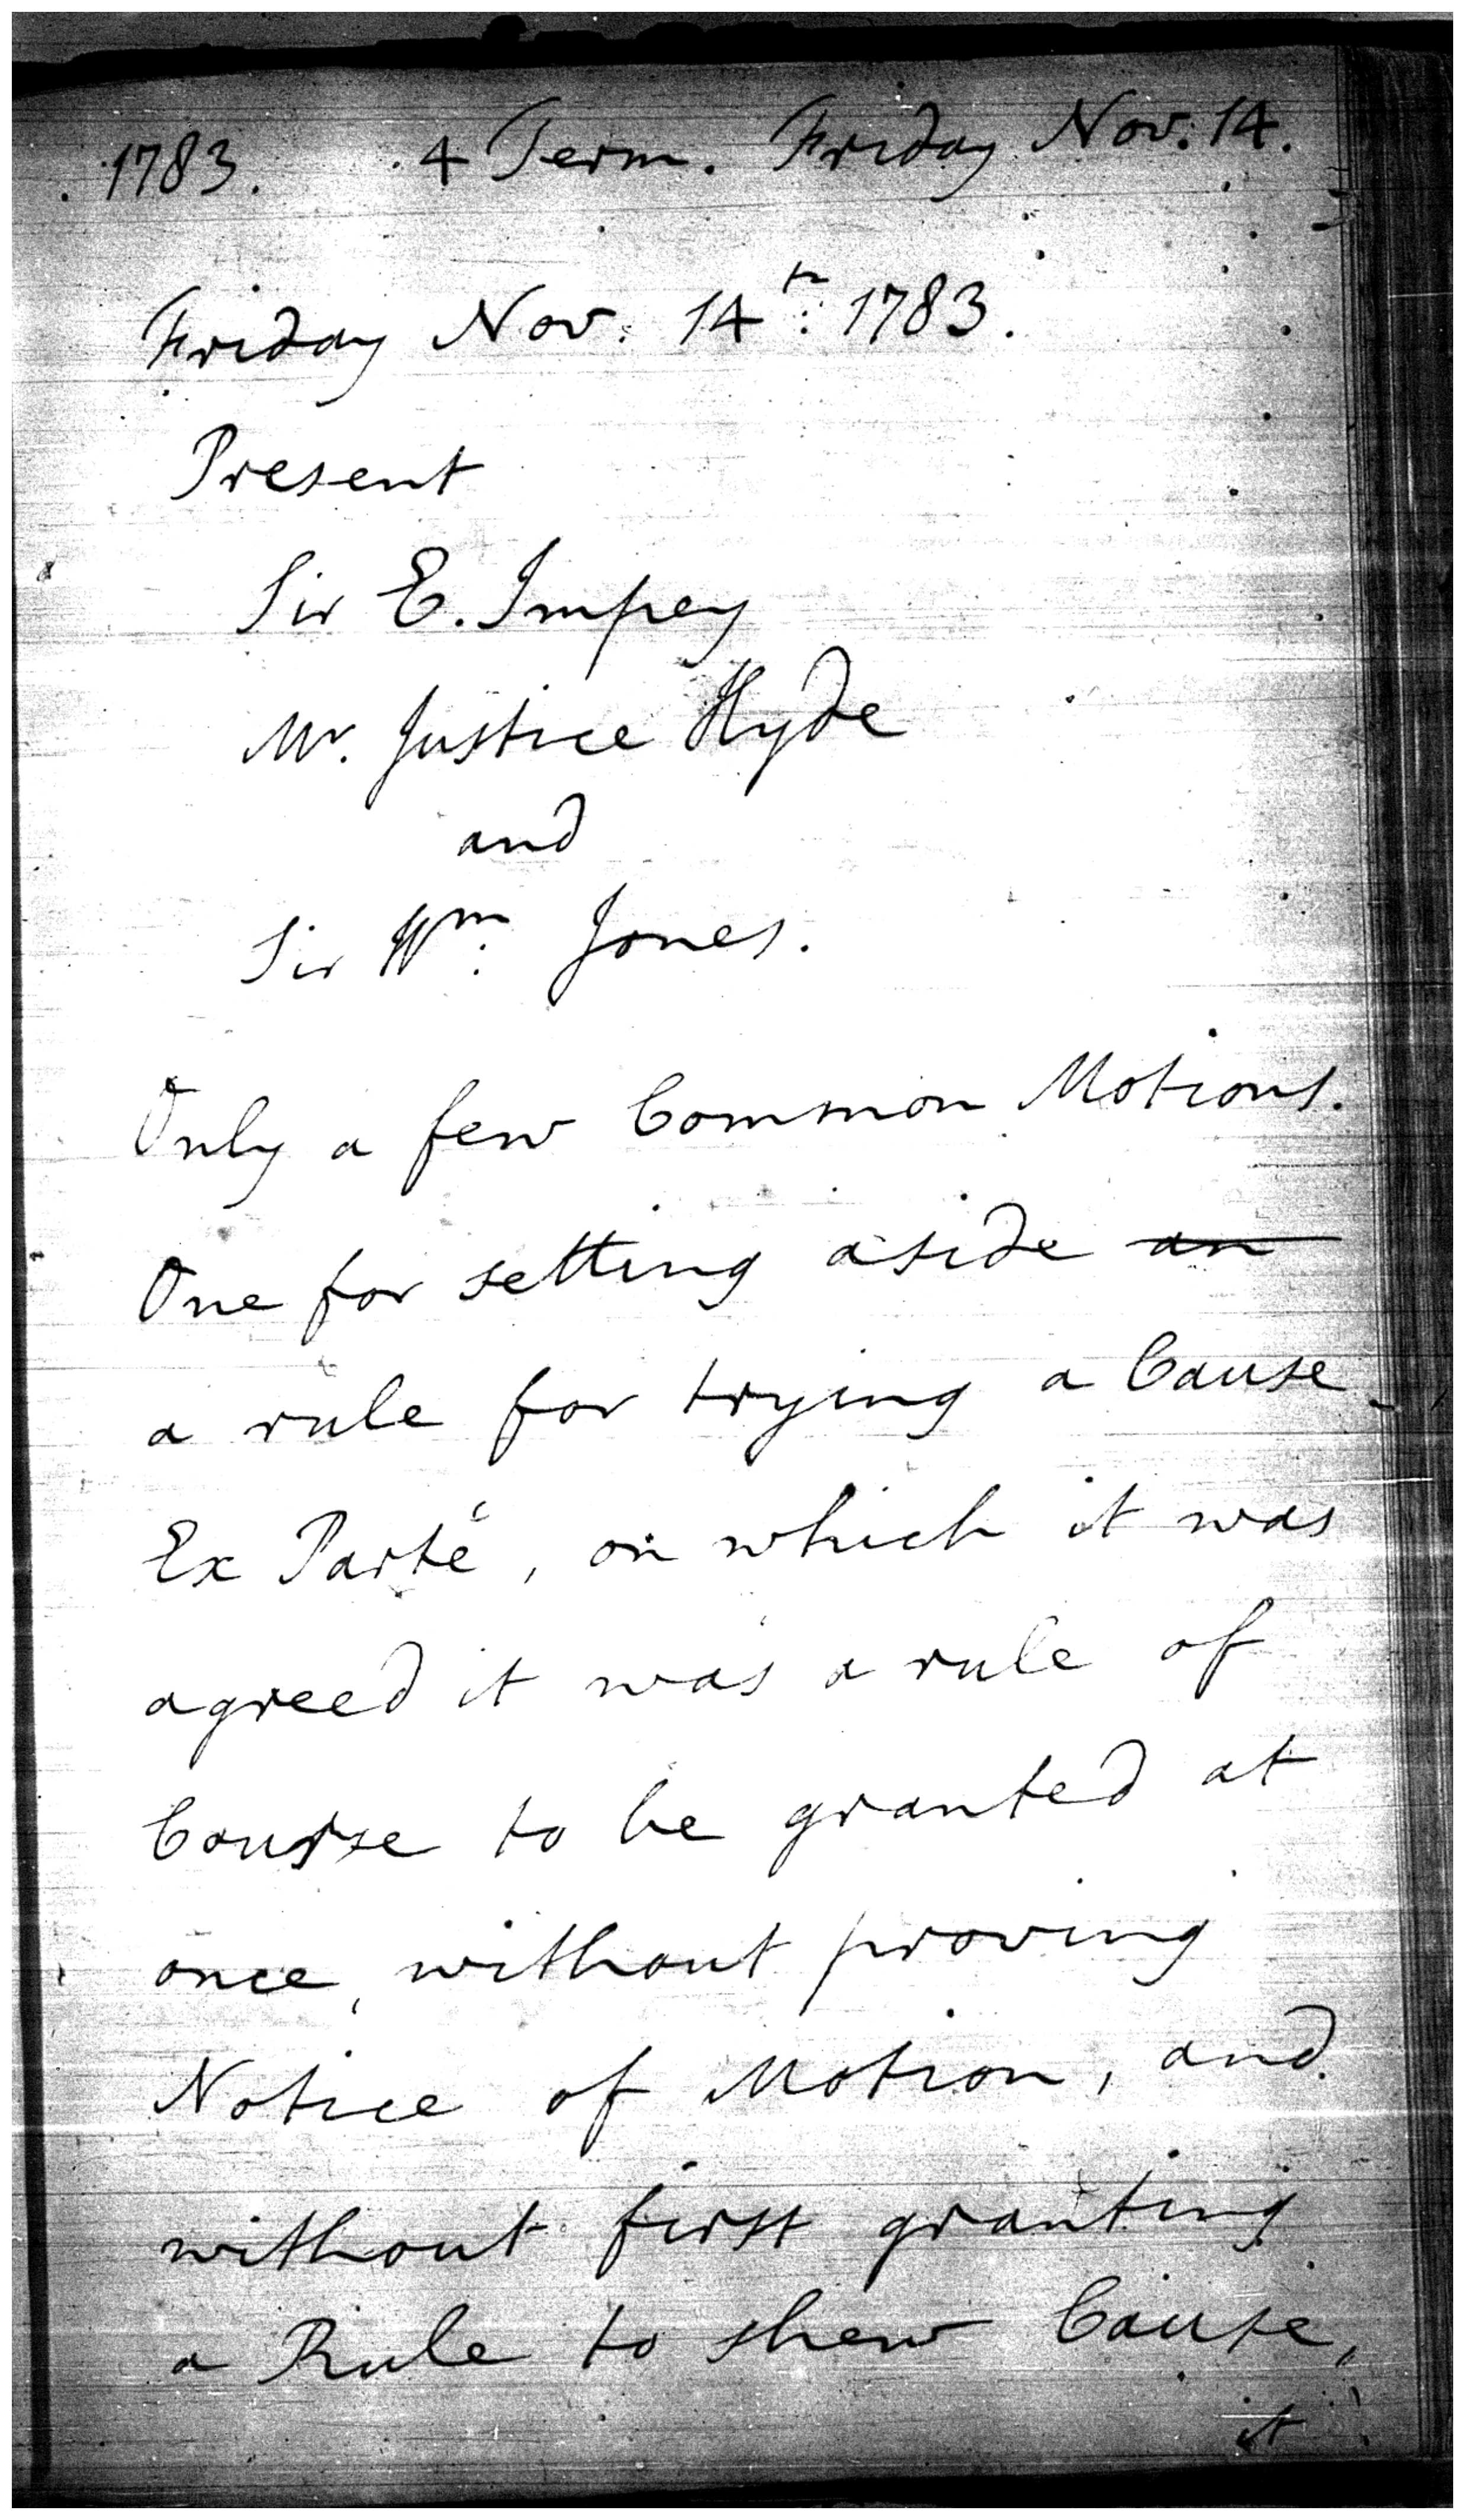 1783. 4 Term. Friday Nov: 14.
Friday Nov: 14th: 1783.
Present
Sir E. Impey
Mr. Justice Hyde
and
Sir Wm: Jones.
Only a few Common Motions.
One for setting aside an
a rule for trying a Cause
Ex Parté, on which it was
agreed it was a rule of
Course to be granted at
once, without proving
Notice of Motion, and
without first granting
a Rule to shew Cause,
it